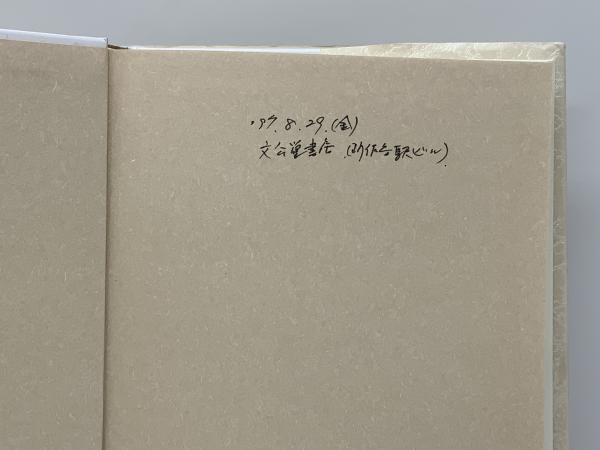 '97.8.29.(金)
文公堂書店 駅ビル)